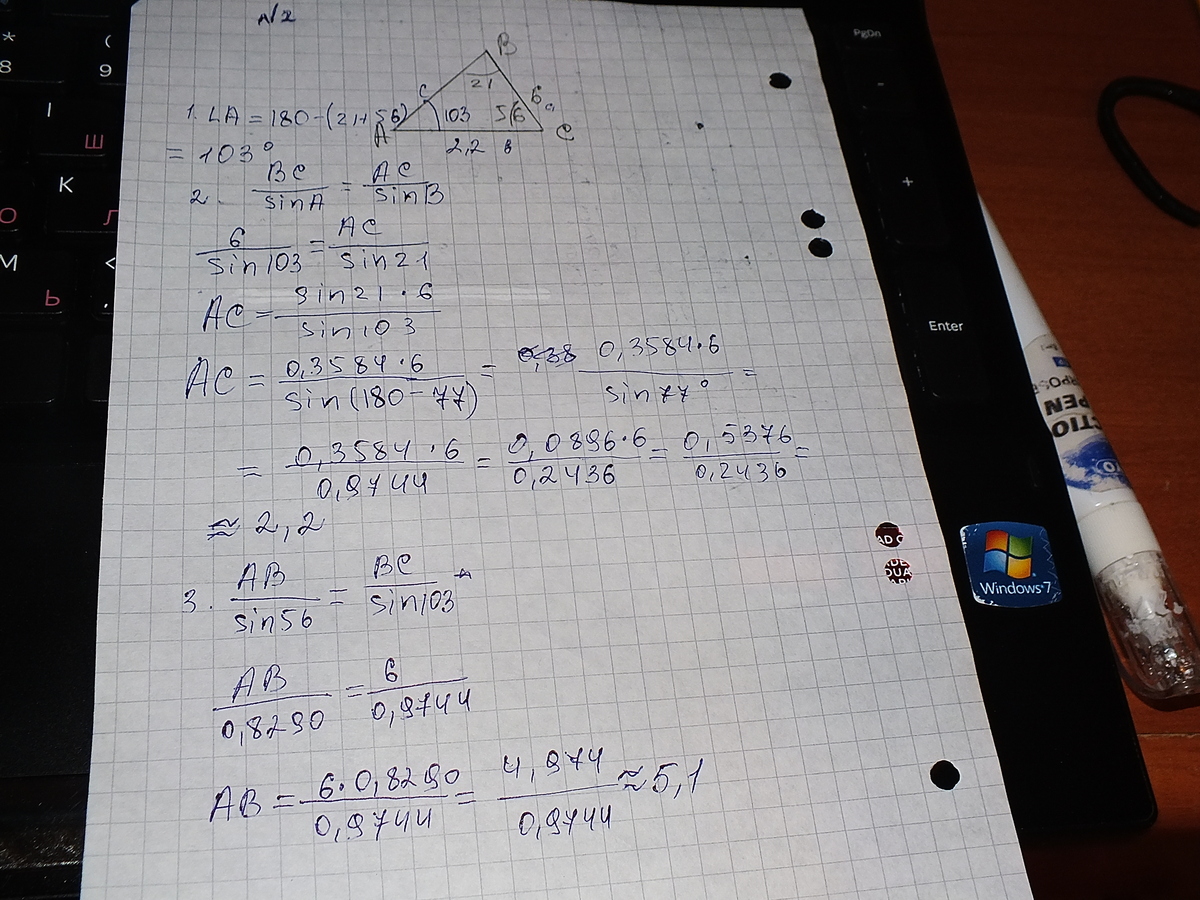 №2
B
21
c
6 a
1. ∠A = 180-(21+56)
A
103
56
C
2,2 в
= 103°
2. BC/sinA = AC/sinB
6/sin103 = AC/sin21
AC = sin21·6/sin103
AC = 0,3584·6/sin(180-77) = 0,3584·6/sin77° =
= 0,3584·6/0,9744 = 0,0896·6/0,2436 = 0,5376/0,2436 =
≈ 2,2
3. AB/sin56 = BC/sin103
AB/0,8290 = 6/0,9744
AB = 6·0,8290/0,9744 = 4,974/0,9744 ≈ 5,1
*
8
(
9
I
Ш
K
О
Л
M
Ь
<
,
PgDn
+
Enter
Windows 7
PEN
AD
DUA